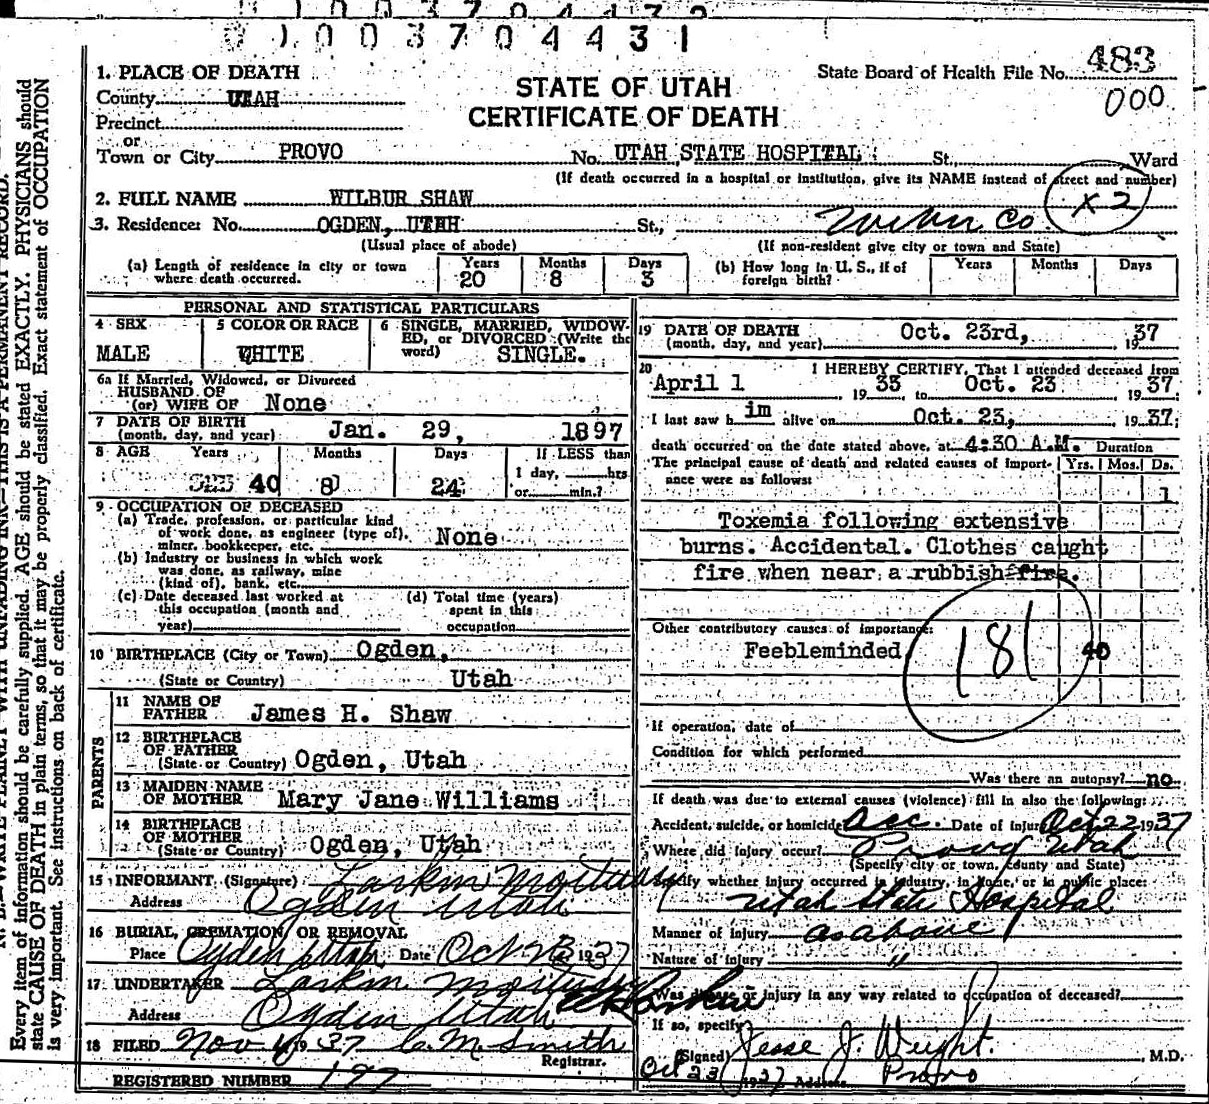 0 1 0 0 3 7 0 4 4 3 1
483
000
1. PLACE OF DEATH
County UTAH
Precinct
or
Town or City PROVO
STATE OF UTAH
CERTIFICATE OF DEATH
State Board of Health File No.
No. UTAH STATE HOSPITAL St., Ward
(If death occurred in a hospital or institution, give its NAME instead of street and number)
2. FULL NAME WILBUR SHAW
x 2
3. Residence: No. OGDEN, UTAH St., Weber Co
(Usual place of abode) (If non-resident give city or town and State)
(a) Length of residence in city or town where death occurred. Years 20 Months 8 Days 3
(b) How long in U. S., if of foreign birth? Years Months Days
PERSONAL AND STATISTICAL PARTICULARS
4 SEX MALE
5 COLOR OR RACE WHITE
6 SINGLE, MARRIED, WIDOWED, or DIVORCED (Write the word) SINGLE.
6a If Married, Widowed, or Divorced
HUSBAND OF
(or) WIFE OF None
7 DATE OF BIRTH
(month, day, and year) Jan. 29, 1897
8 AGE Years 40 Months 8 Days 24
If LESS than
1 day, hrs
or min.?
9 OCCUPATION OF DECEASED
(a) Trade, profession, or particular kind
of work done, as engineer (type of),
miner, bookkeeper, etc. None
(b) Industry or business in which work
was done, as railway, mine
(kind of), bank, etc.
(c) Date deceased last worked at
this occupation (month and
year)
(d) Total time (years)
spent in this
occupation
10 BIRTHPLACE (City or Town) Ogden,
(State or Country) Utah
PARENTS
11 NAME OF
FATHER James H. Shaw
12 BIRTHPLACE
OF FATHER
(State or Country) Ogden, Utah
13 MAIDEN NAME
OF MOTHER Mary Jane Williams
14 BIRTHPLACE
OF MOTHER
(State or Country) Ogden, Utah
15 INFORMANT (Signature) Larkin Mortuary
Address Ogden Utah
16 BURIAL, CREMATION OR REMOVAL
Place Ogden Utah Date Oct 1937
17 UNDERTAKER Larkin Mortuary
Address Ogden Utah
18 FILED Nov 1937 C. M. Smith
Registrar.
REGISTERED NUMBER 197
19 DATE OF DEATH
(month, day, and year) Oct. 23rd, 1937
20 I HEREBY CERTIFY, That I attended deceased from
April 1 1933 to Oct. 23 1937.
I last saw him alive on Oct. 23, 1937;
death occurred on the date stated above, at 4:30 A.M. Duration
The principal cause of death and related causes of importance were as follows: Yrs. Mos. Ds.
1
Toxemia following extensive
burns. Accidental. Clothes caught
fire when near a rubbish fire.
Other contributory causes of importance:
Feebleminded 40
181
If operation, date of
Condition for which performed
Was there an autopsy? no
If death was due to external causes (violence) fill in also the following:
Accident, suicide, or homicide acc. Date of injury Oct 22 1937
Where did injury occur? Provo Utah
(Specify city or town, county and State)
Specify whether injury occurred in industry, in home, or in public place:
Utah State Hospital
Manner of injury as above
Nature of injury "
Was disease or injury in any way related to occupation of deceased?
If so, specify
(Signed) Jesse J. Weight. M.D.
Oct 23 1937 Address Provo
Every item of information should be carefully supplied. AGE should be stated EXACTLY. PHYSICIANS should
state CAUSE OF DEATH in plain terms, so that it may be properly classified. Exact statement of OCCUPATION
is very important. See instructions on back of certificate.
N. B.—WRITE PLAINLY WITH UNFADING INK—THIS IS A PERMANENT RECORD.